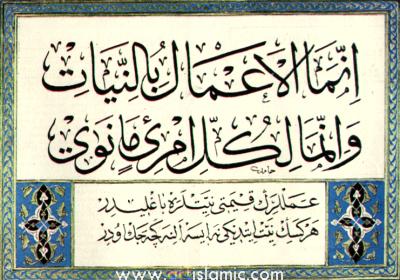 إنما الأعمال بالنيات
وإنما لكل امرئ ما نوى
حامد
عمللرك قيمتى نيتلره باغليدر
هركسك نيت ايتديكى نه ايسه الينه كچه جك اودر
www.artislamic.com